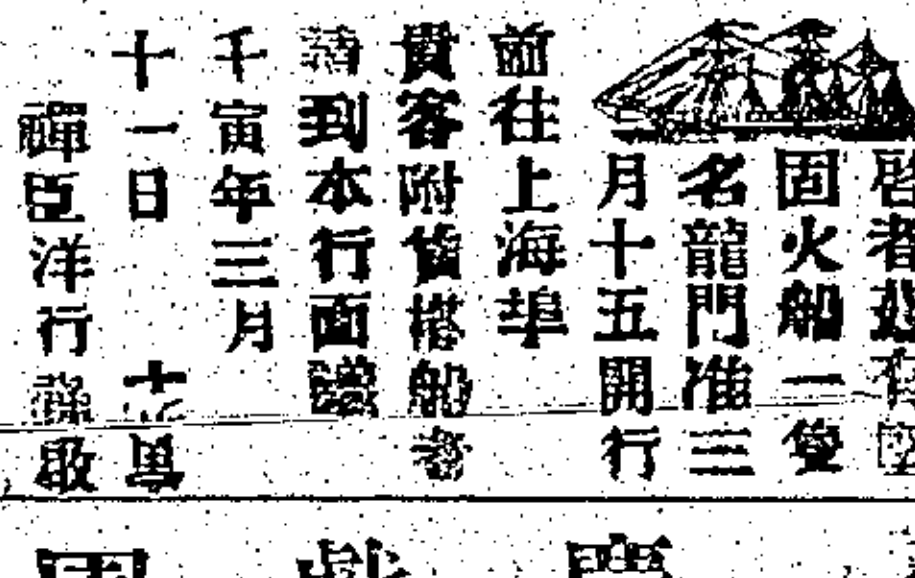 啓者茲有堅
固火船一隻
名龍門准三
月十五開行
前往上海埠
貴客附貨搭船者
請到本行面議
壬寅年三月
十一日
禪臣洋行 啟